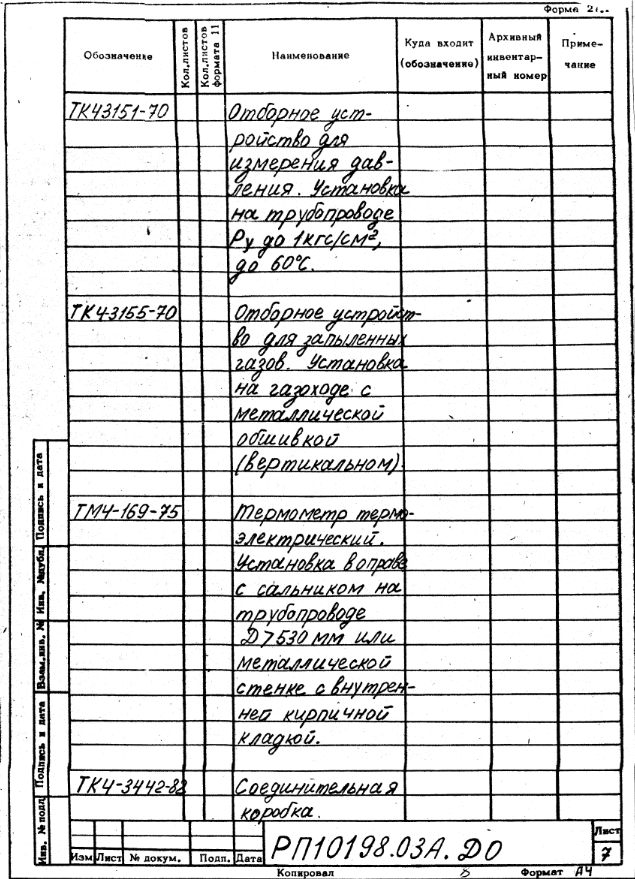 Форма 2
Обозначение
Кол.листов
Кол.листов
формата 11
Наименование
Куда входит
(обозначение)
Архивный
инвентар-
ный номер
Приме-
чание
ТК43151-70
Отборное уст-
ройство для
измерения дав-
ления. Установка
на трубопроводе
Ру до 1кгс/см²,
до 60°С.
ТК4-3155-70
Отборное устройст-
во для запыленных
газов. Установка
на газоходе с
металлической
обшивкой
(вертикальном)
ТМ4-169-75
Термометр термо-
электрический.
Установка в оправе
с сальником на
трубопроводе
D7530 мм или
металлической
стенке с внутрен-
ней кирпичной
кладкой.
ТК4-3442-82
Соединительная
коробка.
Подпись и дата
Инв. №дубл.
Взам.инв. №
Подпись и дата
Инв. №подл.
Изм
Лист
№ докум.
Подп.
Дата
РП10198.03А.ДО
Лист
7
Копировал
Формат А4